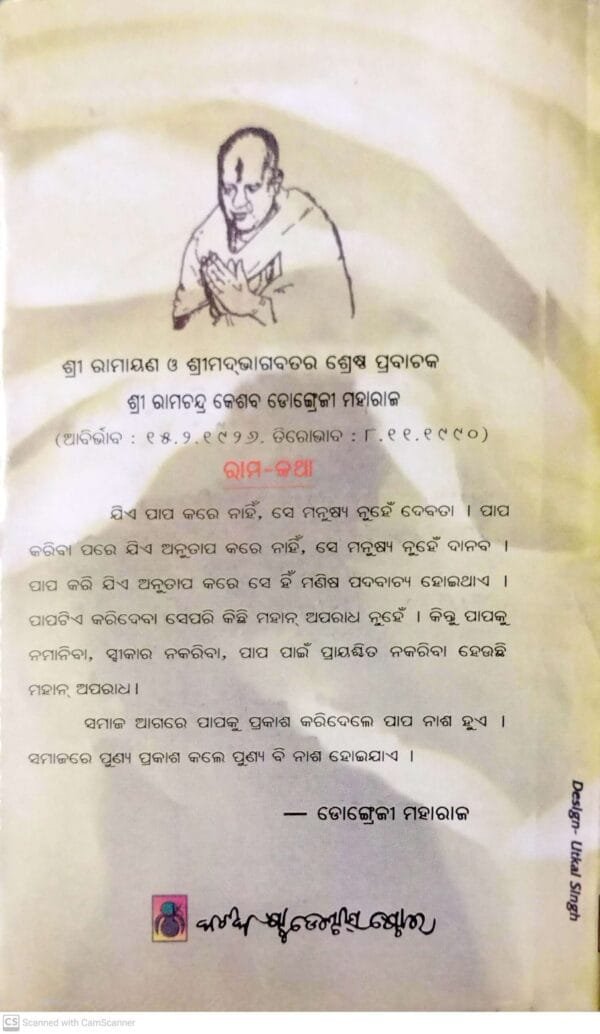 ଶ୍ରୀ ରାମାୟଣ ଓ ଶ୍ରୀମଦ୍‌ଭାଗବତର ଶ୍ରେଷ୍ଠ ପ୍ରବାଚକ
ଶ୍ରୀ ରାମଚନ୍ଦ୍ର କେଶବ ଡୋଙ୍ଗ୍ରେଜୀ ମହାରାଜ
(ଆବିର୍ଭାବ : ୧୫.୨.୧୯୨୬. ତିରୋଭାବ : ୮.୧୧.୧୯୯୦)
ରାମ-କଥା
ଯିଏ ପାପ କରେ ନାହିଁ, ସେ ମନୁଷ୍ୟ ନୁହେଁ ଦେବତା । ପାପ
କରିବା ପରେ ଯିଏ ଅନୁତାପ କରେ ନାହିଁ, ସେ ମନୁଷ୍ୟ ନୁହେଁ ଦାନବ ।
ପାପ କରି ଯିଏ ଅନୁତାପ କରେ ସେ ହିଁ ମଣିଷ ପଦବାଚ୍ୟ ହୋଇଥାଏ ।
ପାପଟିଏ କରିଦେବା ସେପରି କିଛି ମହାନ୍ ଅପରାଧ ନୁହେଁ । କିନ୍ତୁ ପାପକୁ
ନମାନିବା, ସ୍ୱୀକାର ନକରିବା, ପାପ ପାଇଁ ପ୍ରାୟଶ୍ଚିତ ନକରିବା ହେଉଛି
ମହାନ୍ ଅପରାଧ।
ସମାଜ ଆଗରେ ପାପକୁ ପ୍ରକାଶ କରିଦେଲେ ପାପ ନାଶ ହୁଏ ।
ସମାଜରେ ପୁଣ୍ୟ ପ୍ରକାଶ କଲେ ପୁଣ୍ୟ ବି ନାଶ ହୋଇଯାଏ ।
— ଡୋଙ୍ଗ୍ରେଜୀ ମହାରାଜ
Design- Utkal Singh
କଟକ ଷ୍ଟୁଡେଣ୍ଟସ୍ ଷ୍ଟୋର
CS Scanned with CamScanner